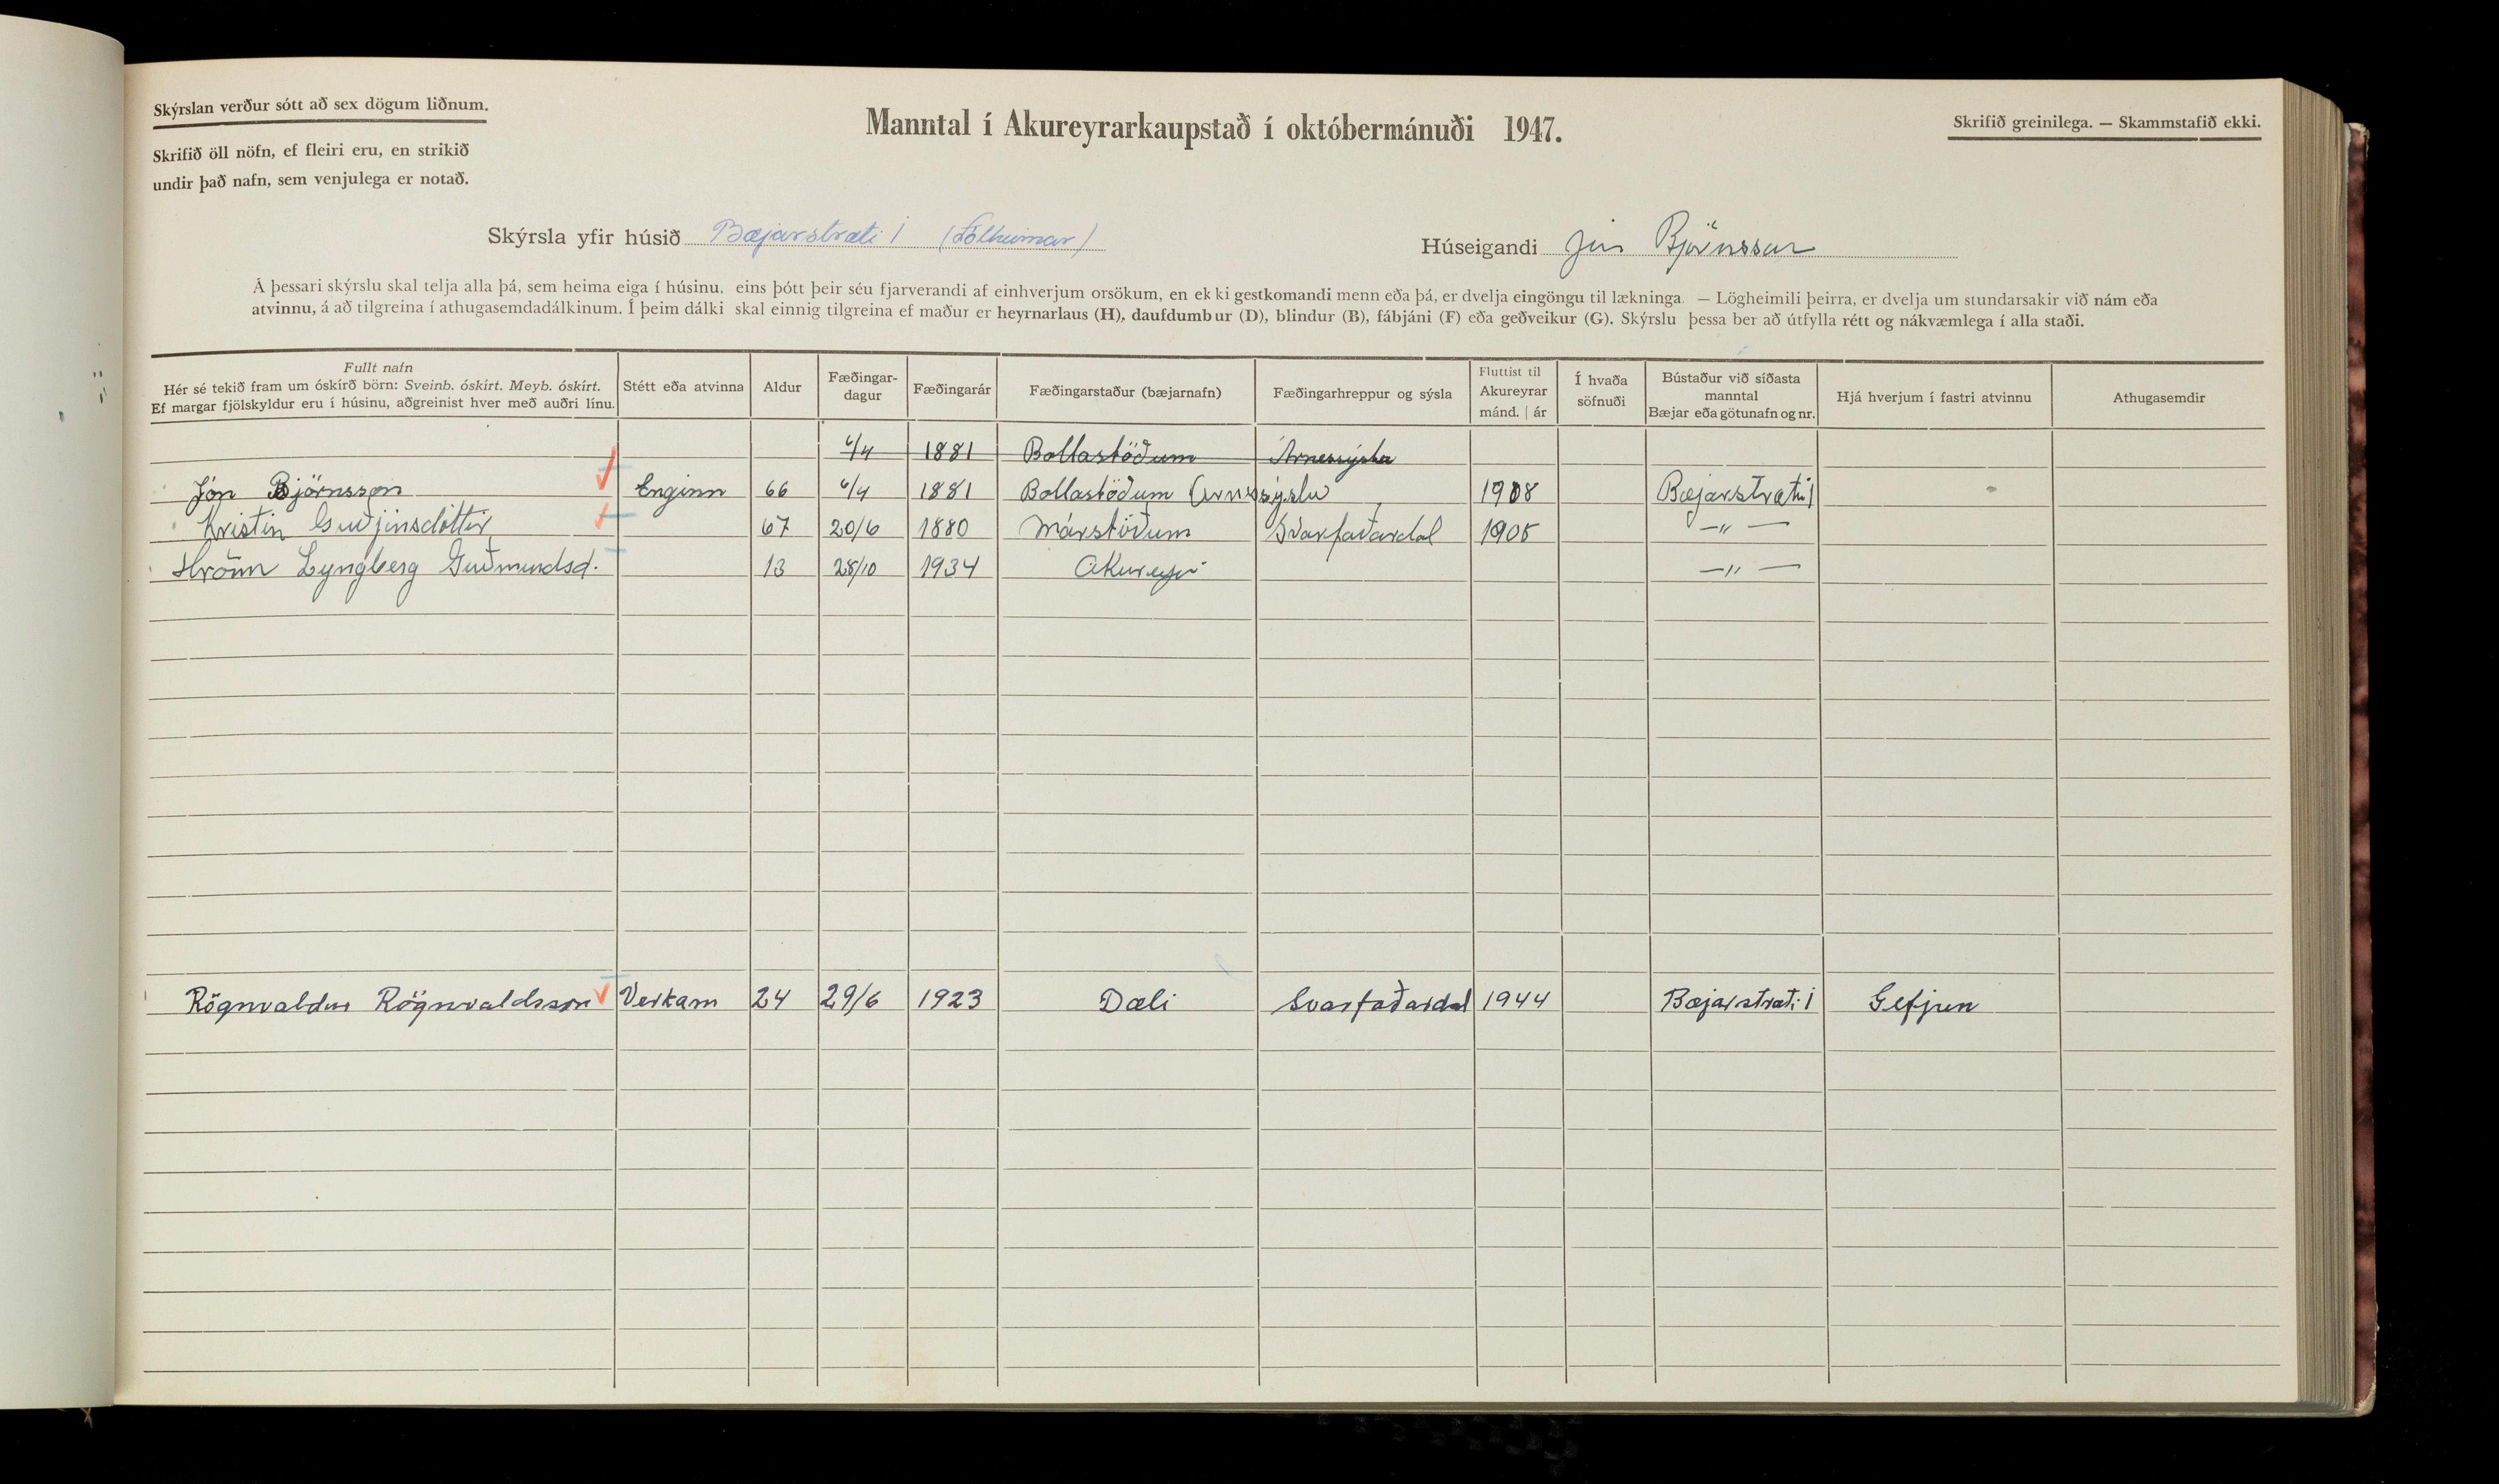 Skýrslan verður sótt að sex dögum liðnum.
Skrifið öll nöfn, ef fleiri eru, en strikið
undir það nafn, sem venjulega er notað.
Manntal í Akureyrarkaupstað í októbermánuði 1947.
Skrifið greinilega. — Skammstafið ekki.
Skýrsla yfir húsið Bæjarstræti 1 (Sólheimar)
Húseigandi Jón Björnsson
Á þessari skýrslu skal telja alla þá, sem heima eiga í húsinu, eins þótt þeir séu fjarverandi af einhverjum orsökum, en ekki gestkomandi menn eða þá, er dvelja eingöngu til lækninga. — Lögheimili þeirra, er dvelja um stundarsakir við nám eða
atvinnu, á að tilgreina í athugasemdadálkinum. Í þeim dálki skal einnig tilgreina ef maður er heyrnarlaus (H), daufdumbur (D), blindur (B), fábjáni (F) eða geðveikur (G). Skýrslu þessa ber að útfylla rétt og nákvæmlega í alla staði.
Fullt nafn
Hér sé tekið fram um óskírð börn: Sveinb. óskírt. Meyb. óskírt.
Ef margar fjölskyldur eru í húsinu, aðgreinist hver með auðri línu.
Stétt eða atvinna
Aldur
Fæðingar-
dagur
Fæðingarár
Fæðingarstaður (bæjarnafn)
Fæðingarhreppur og sýsla
Fluttist til
Akureyrar
mánd. | ár
Í hvaða
söfnuði
Bústaður við síðasta
manntal
Bæjar eða götunafn og nr.
Hjá hverjum í fastri atvinnu
Athugasemdir
6/4 1881 Bollastöðum Árnessýslu
Jón Björnsson Enginn 66 6/4 1881 Bollastöðum Árnessýslu 1908 Bæjarstræti 1
Kristín Guðjónsdóttir 67 20/6 1880 Márstöðum Svarfaðardal 1905 —〃—
Hrönn Lyngberg Guðmundsd. 13 28/10 1934 Akureyri —〃—
Rögnvaldur Rögnvaldsson Verkam 24 29/6 1923 Dæli Svarfaðardal 1944 Bæjarstræti 1 Gefjun